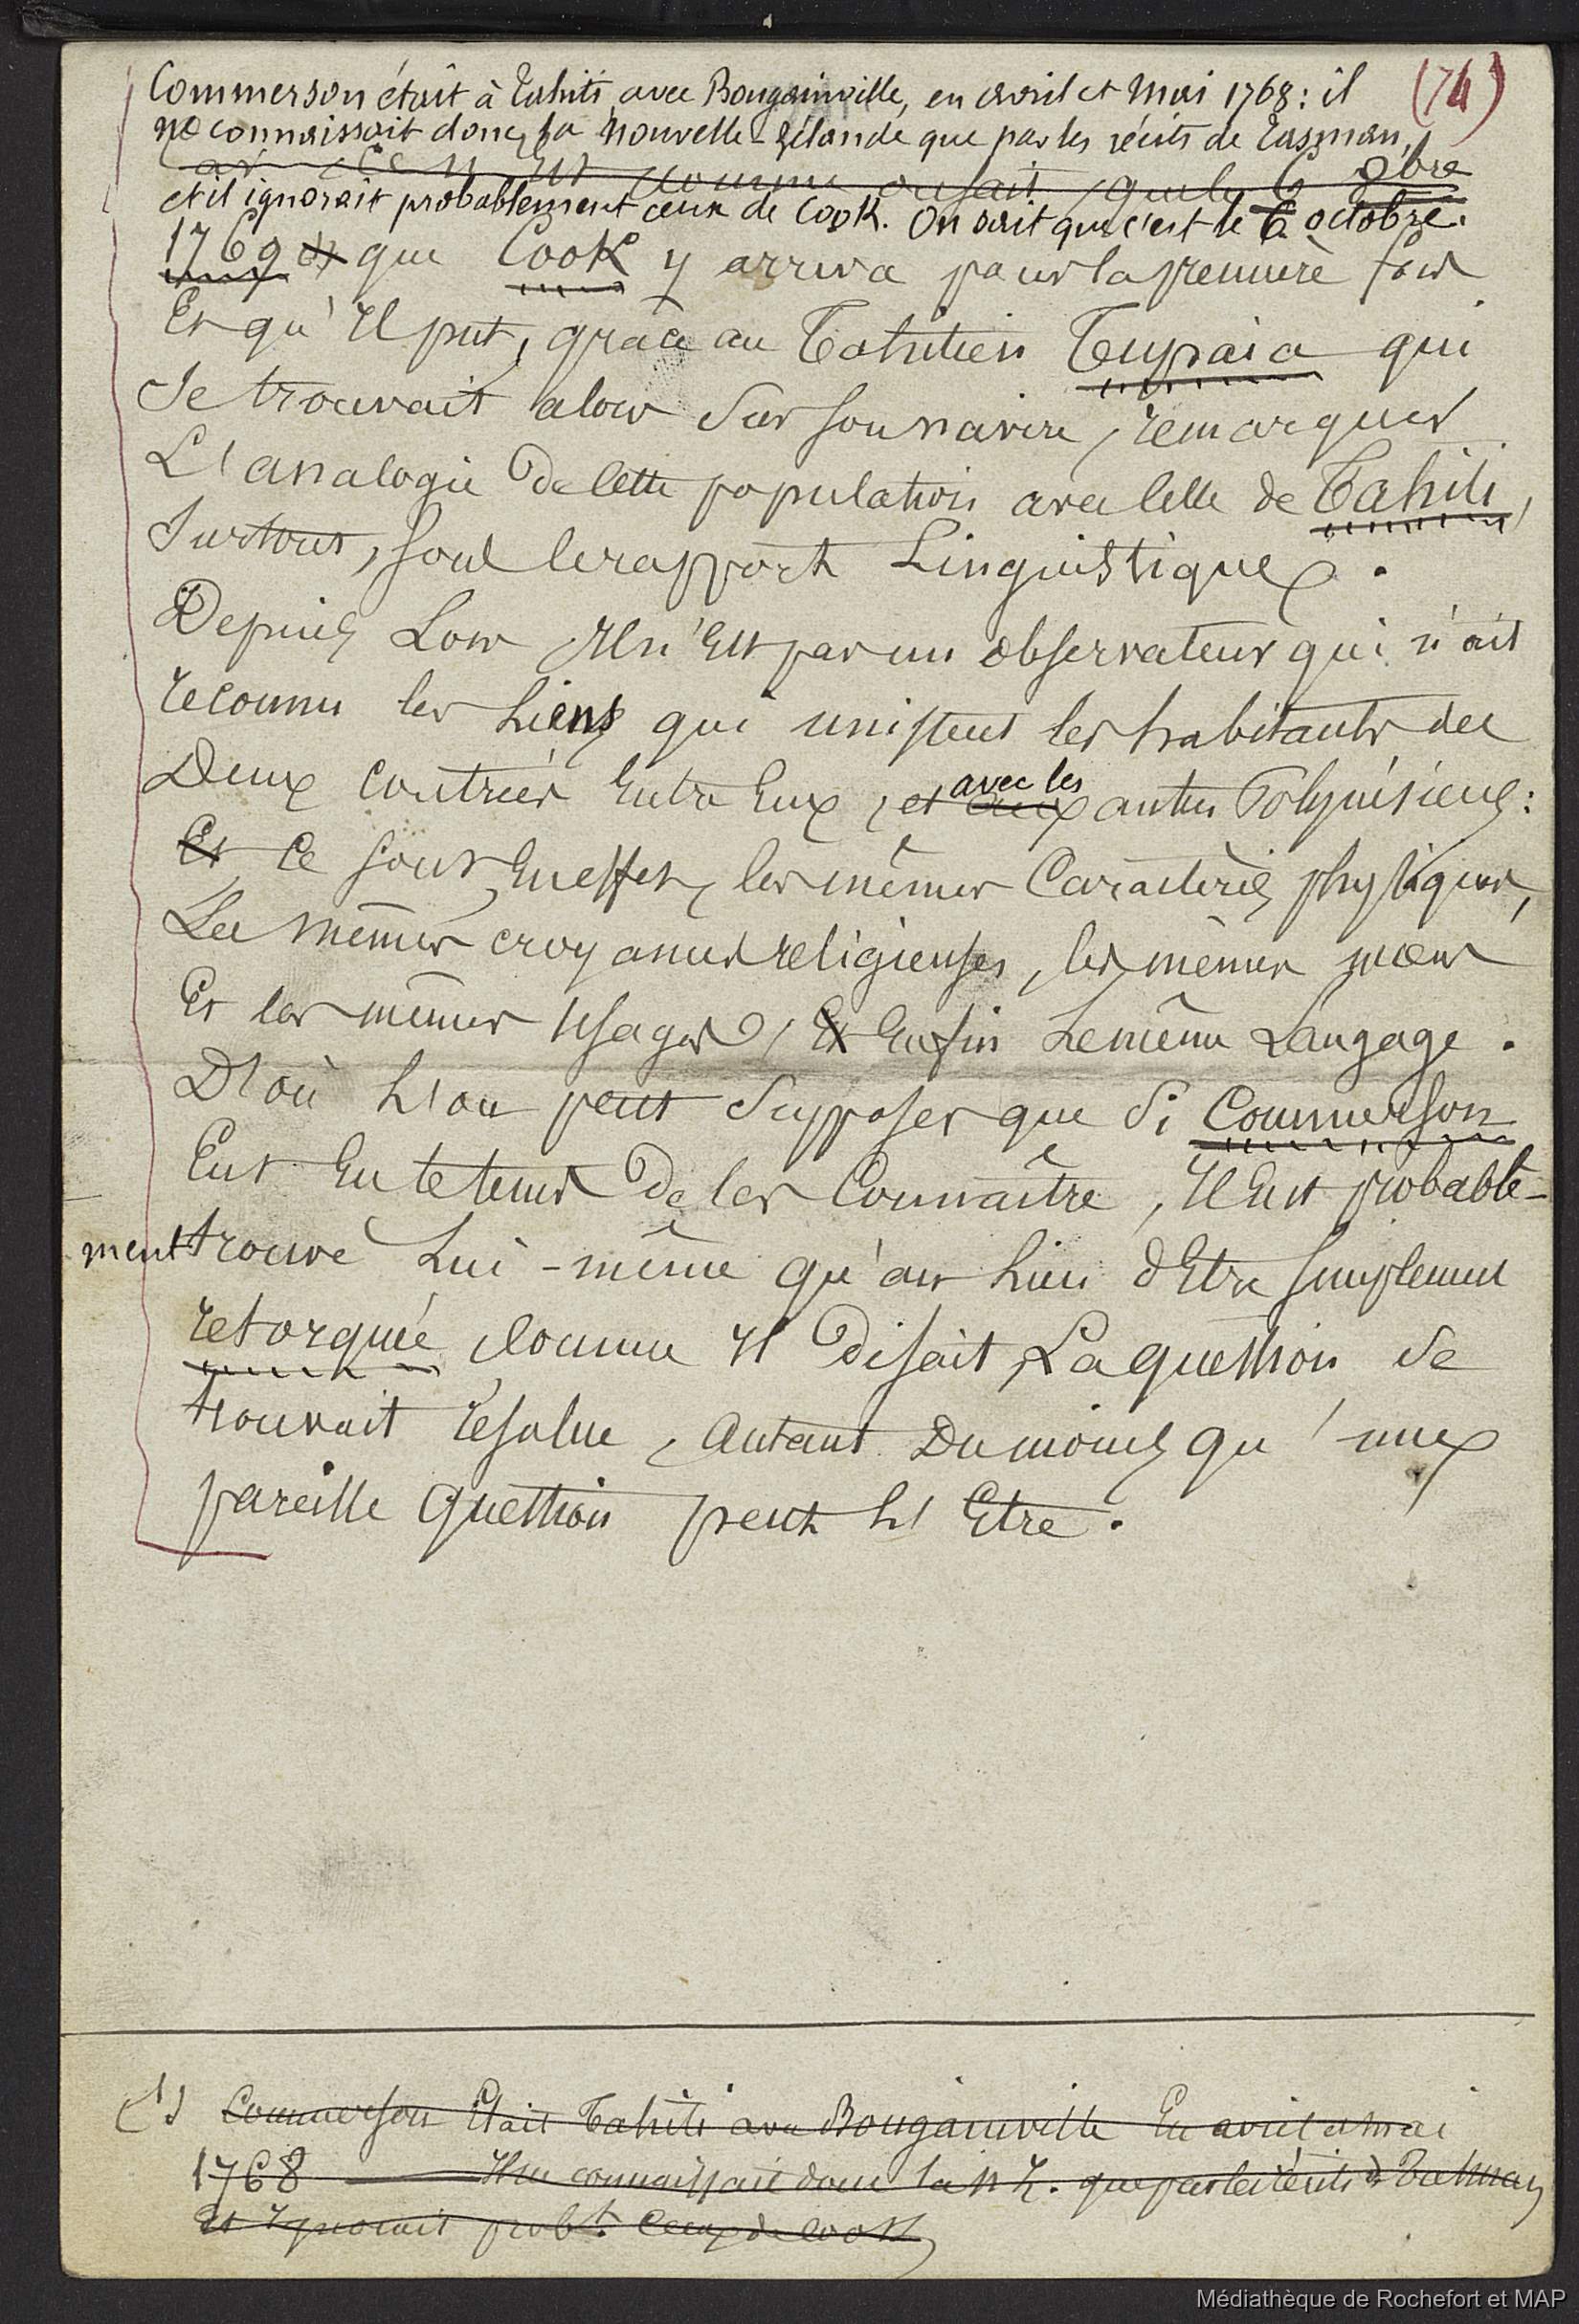 Commerson était à Tahiti, avec Bougainville, en avril et Mai 1768 : il (74)
ne connaissait donc la Nouvelle-Zélande que par les récits de Tasman,
car ce n'est comme on sait, que le 6 8bre
et il ignorait probablement ceux de Cook. On sait que c'est le 6 octobre.
1769 que Cook y arriva pour la première fois
Et qu'il put, grâce au Tahitien Tupaia qui
Se trouvait alors Sur son navire, remarquer
L'analogie de cette population avec celle de Tahiti,
Surtout, sous le rapport Linguistique.
Depuis Lors Il n'Est pas un observateur qui n'ait
reconnu les Liens qui unissent les habitants des
Deux contrées Entre Eux, et avec les autres Polynésiens :
Et Ce sont En effet, les mêmes Caractères physiques,
Les mêmes croyances religieuses, les mêmes mœurs
Et les mêmes usages, Et Enfin Le même Langage.
D'où L'on peut Supposer que Si Commerson
Eut Eu le temps De les Connaître, Il Eut probable-
ment trouvé Lui-même qu'au Lieu d'Etre simplement
retorquée, comme Il Disait, La question Se
trouvait résolue, Autant Du moins qu'une
pareille Question peut L'Etre.
(1) Commerson Etait Tahiti avec Bougainville En avril et mai
1768 Il ne connaissait donc la N Z. que par les récits de Tasman
Et Ignorait probt. Ceux de Cook